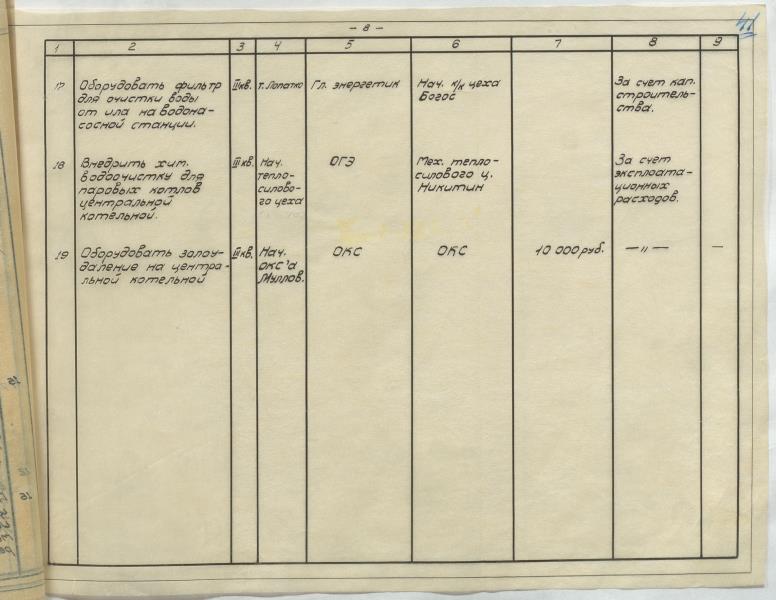 41
— 8 —
1 2 3 4 5 6 7 8 9
17 Оборудовать фильтр для очистки воды от ила на водона-сосной станции. III кв. т. Лопатко Гл. энергетик Нач. к/к цеха Богос За счет кап. строитель-ства.
18 Внедрить хим. водоочистку для паровых котлов центральной котельной. III кв. Нач. тепло-силово-го цеха ОГЭ Мех. тепло-силового ц. Никитин За счет эксплоата-ционных расходов.
19 Оборудовать золоу-даление на центра-льной котельной III кв. Нач. ОКС'а Муллов. ОКС ОКС 10 000 руб. — " — —